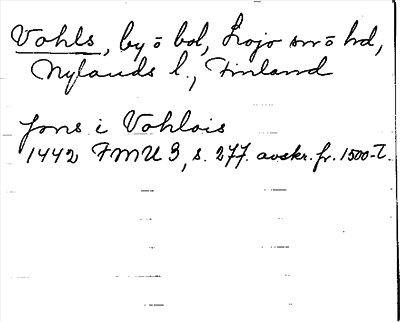 Vohls, by o bol, Lojo sn o hd,
Nylands l., Finland
Jons i Vohlois
1442 FMU 3, s. 277. avskr. fr. 1500-t.